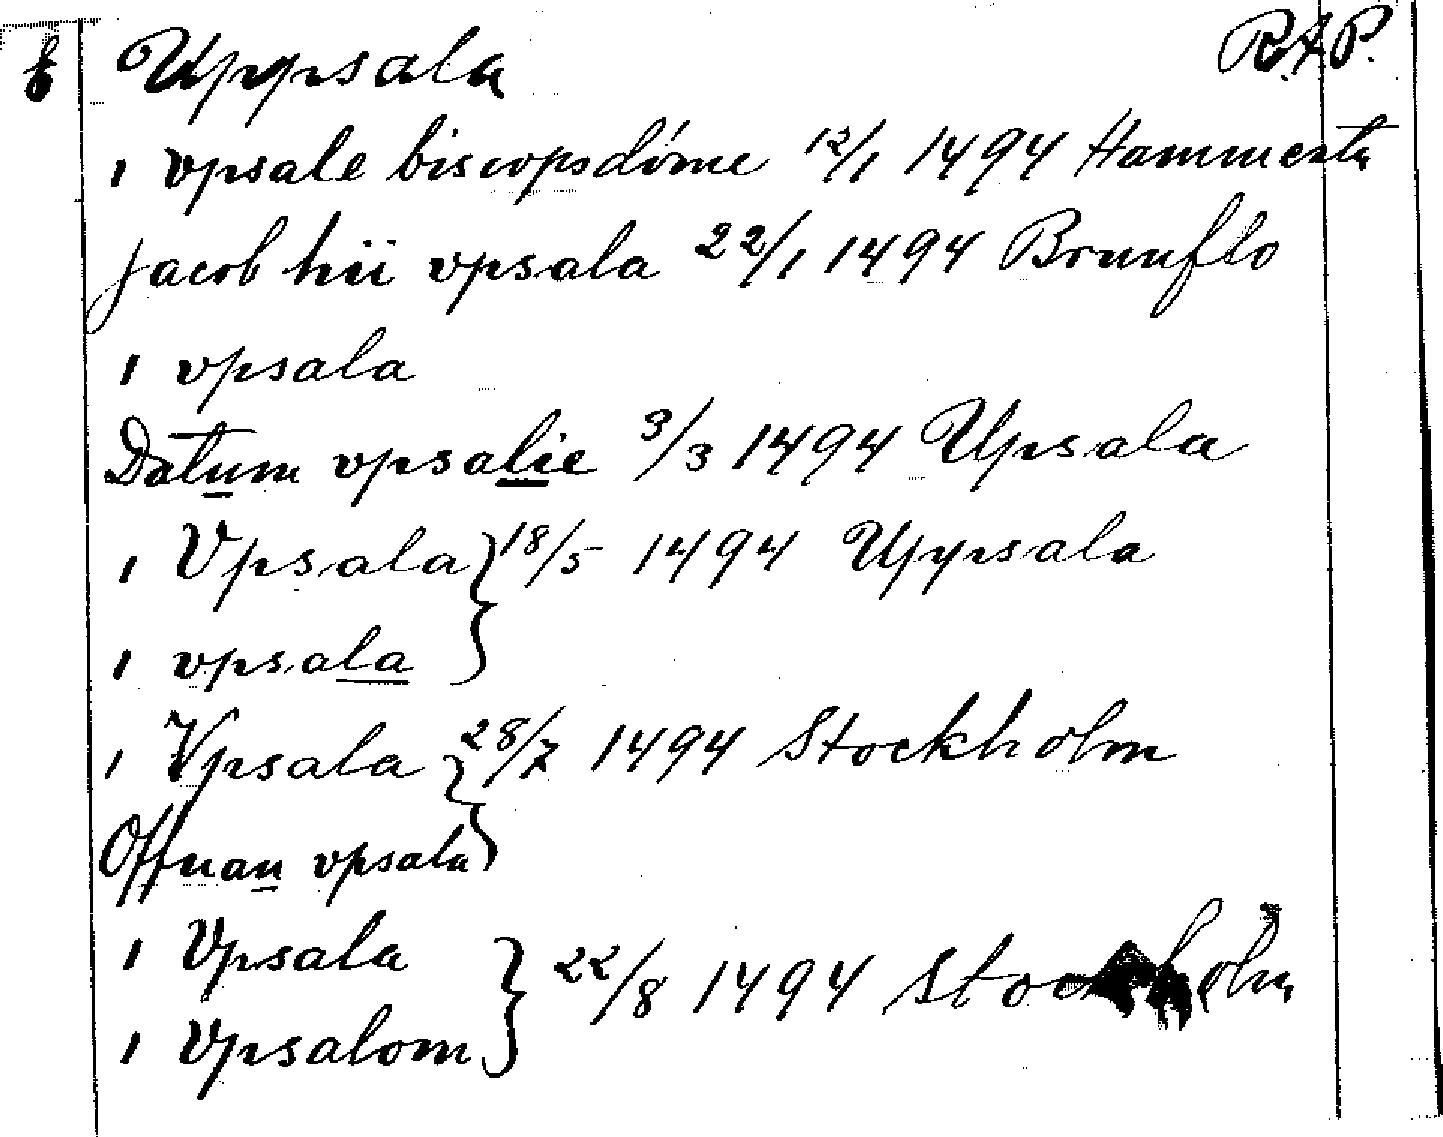 Uppsala R.A.P.
i vpsale biscopsdóme 12/1 1494 Hammersta
Jacob hii vpsala 22/1 1494 Brunflo
i vpsala
Datum vpsalie 3/3 1494 Upsala
i Vpsala } 18/5 1494 Uppsala
i vpsala
i Vpsala } 28/7 1494 Stockholm
Offnan vpsala
i Vpsala } 22/8 1494 Stockholm
i Vpsalom